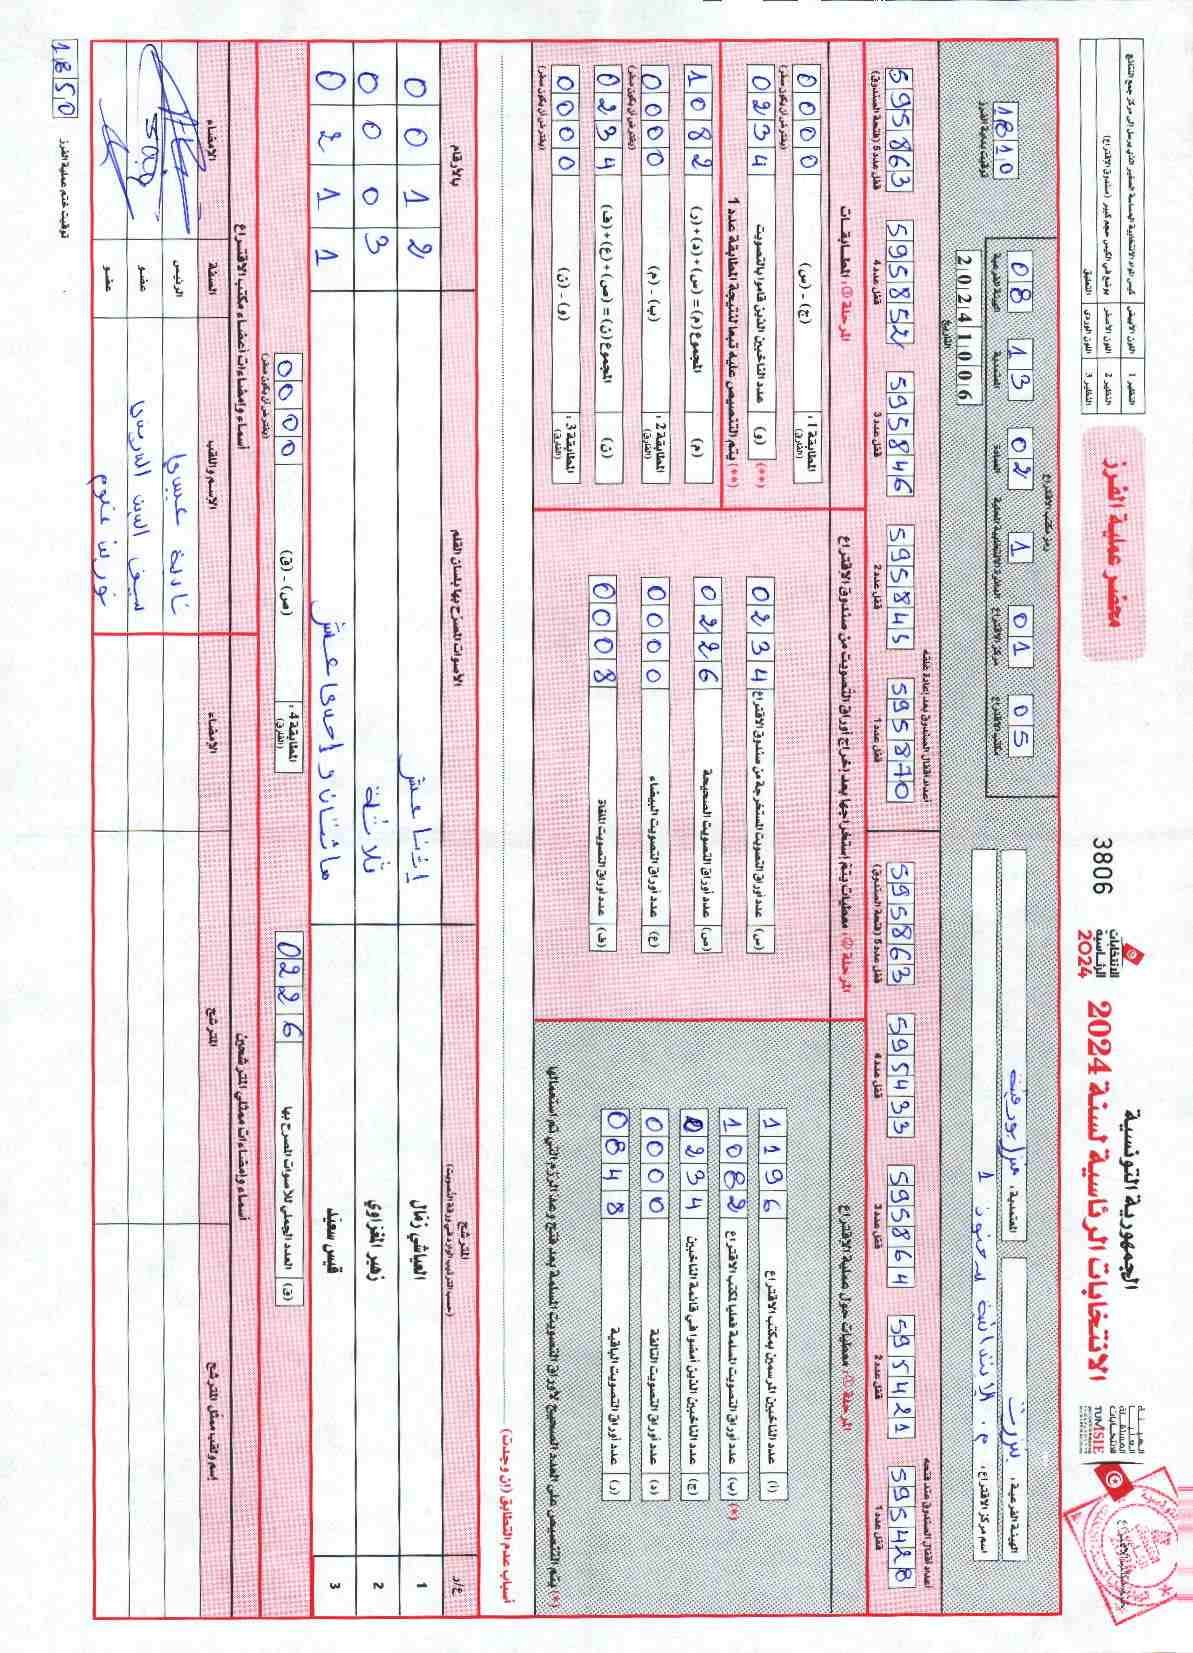 الجمهورية التونسية
الانتخابات الرئاسية لسنة 2024
الانتخابات
الرئاسية
2024
3806
محضر عملية الفرز
النظير 1
اللون الأبيض
النظير 2
اللون الأصفر
يوضع في الكيس حجم كبير (صندوق الاقتراع)
النظير 3
اللون الوردي
التعليق
الهيئة الفرعية: بنزرت
المعتمدية:
اسم مركز الاقتراع: م. الابتدائية
رمز مكتب الاقتراع
08 13 02 1 01 05
الهيئة الفرعية
المعتمدية
العمادة
الدائرة الانتخابية المحلية
مركز الاقتراع
مكتب الاقتراع
20241006
التاريخ
1810
توقيت بداية الفرز
أعداد أقفال الصندوق عند فتحه
595428
قفل عدد 1
595421
قفل عدد 2
595864
قفل عدد 3
595433
قفل عدد 4
595863
قفل عدد 5 (فتحة الصندوق)
أعداد أقفال الصندوق بعد إعادة غلقه
595870
قفل عدد 1
595845
قفل عدد 2
595846
قفل عدد 3
595852
قفل عدد 4
595863
قفل عدد 5 (فتحة الصندوق)
المرحلة ①: معطيات حول عملية الاقتراع
(أ) عدد الناخبين المرسمين بمكتب الاقتراع 1196
(ب) عدد أوراق التصويت المسلمة فعليا لمكتب الاقتراع 1082 (*)
(ج) عدد الناخبين الذين أمضوا في قائمة الناخبين 0234
(د) عدد أوراق التصويت التالفة 0000
(ر) عدد أوراق التصويت الباقية 0848
(*) يتم التنصيص على العدد الصحيح لأوراق التصويت المسلمة بعد فتح وعد الرزم التي تم استعمالها
المرحلة ②: معطيات يتم إستخراجها بعد إخراج أوراق التصويت من صندوق الاقتراع
(س) عدد أوراق التصويت المستخرجة من صندوق الاقتراع 0234
(ص) عدد أوراق التصويت الصحيحة 0226
(ع) عدد أوراق التصويت البيضاء 0000
(ف) عدد أوراق التصويت الملغاة 0008
المرحلة ③: المطابقات
المطابقة 1: (الفارق) (ج) - (س) 0000 (يفترض أن يكون صفر)
(**) (و) عدد الناخبين الذين قاموا بالتصويت 0234
(**) يتم التنصيص عليه تبعا لنتيجة المطابقة عدد 1
(م) المجموع (م) = (س) + (د) + (ر) 1082
المطابقة 2: (الفارق) (ب) - (م) 0000 (يفترض أن يكون صفر)
(ن) المجموع (ن) = (ص) + (ع) + (ف) 0234
المطابقة 3: (الفارق) (و) - (ن) 0000 (يفترض أن يكون صفر)
أسباب عدم التطابق (إن وجدت)
ع/ر
المترشح
(حسب الترتيب الوارد في ورقة التصويت)
الأصوات المصرّح بها بلسان القلم
بالأرقام
1 العياشي زمّال اثنا عشر 0012
2 زهير المغزاوي ثلاثة 0003
3 قيس سعيّد مائتان و احدى عشر 0211
(ق) العدد الجملي للأصوات المصرح بها 0226
المطابقة 4: (الفارق) (ص) - (ق) 0000 (يفترض أن يكون صفر)
أسماء وإمضاءات ممثلي المترشحين
أسماء وإمضاءات أعضاء مكتب الاقتراع
إسم ولقب ممثل المترشح
المترشح
الإمضاء
الإسم واللقب
الصفة
الإمضاء
نادية عيسى الرئيس
سيف الدين عضو
عضو
1850
توقيت ختم عملية الفرز